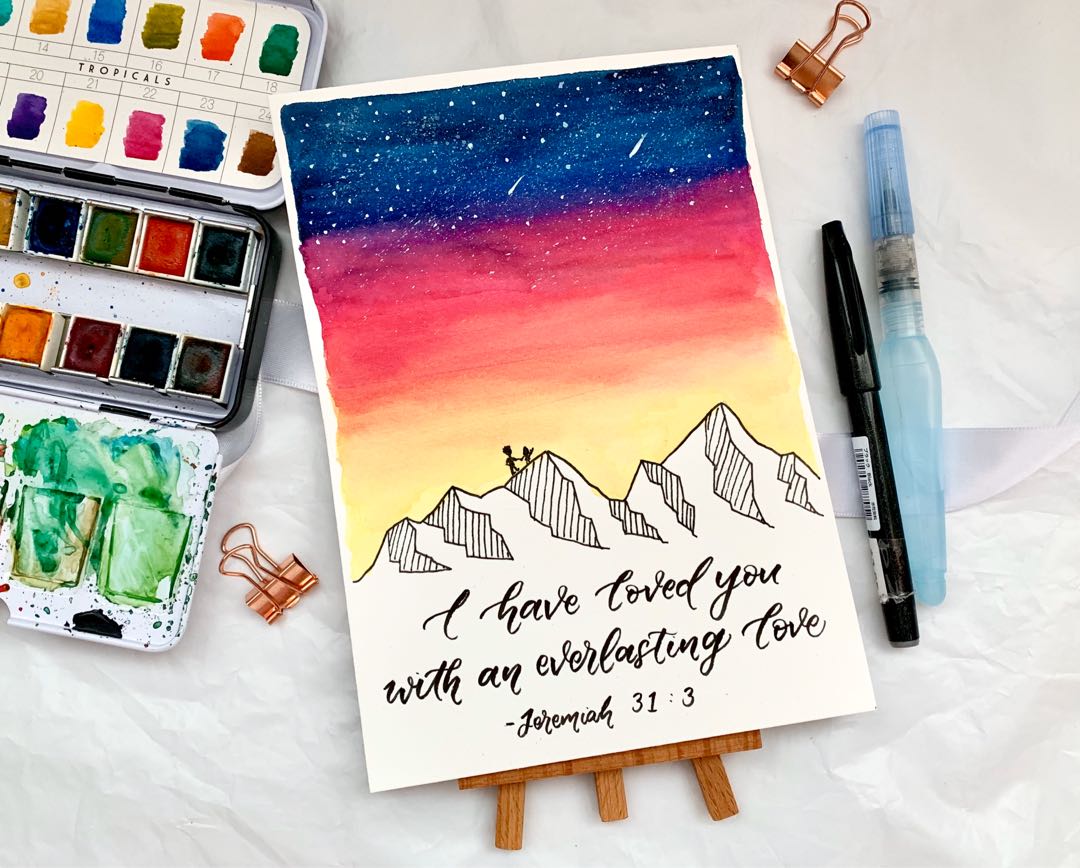 14 15 16 17 18
TROPICALS
20 21 22 23 24
I have loved you
with an everlasting love
-Jeremiah 31:3